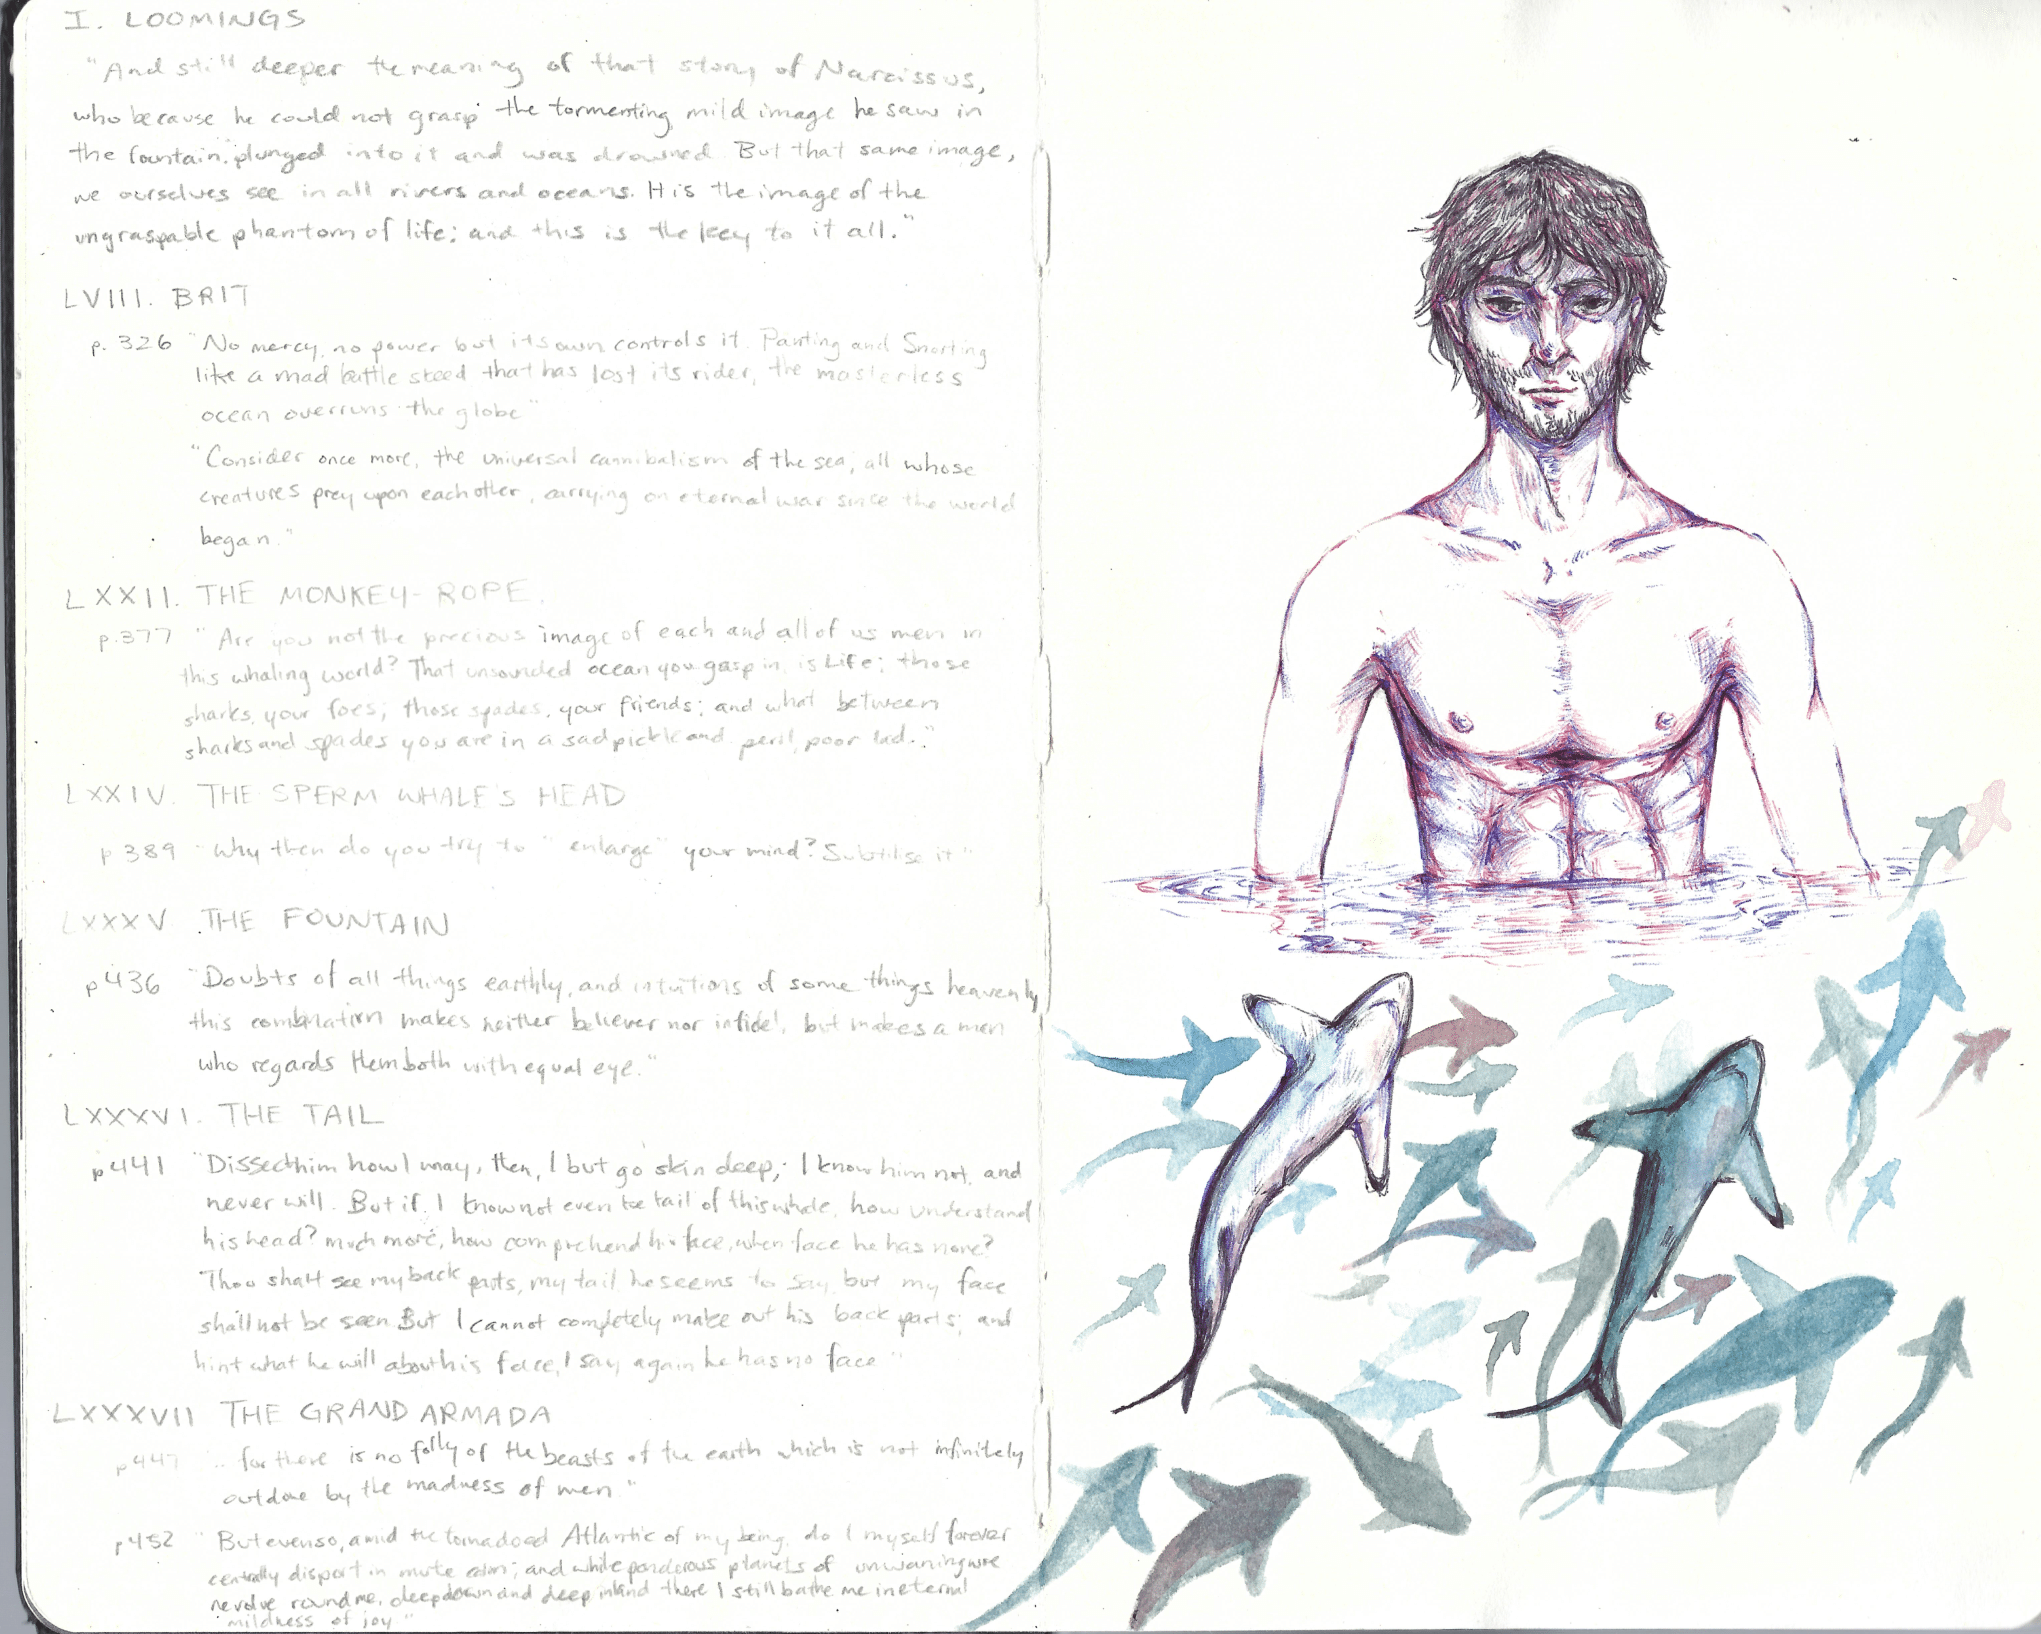 I. LOOMINGS
"And still deeper the meaning of that story of Narcissus,
who because he could not grasp the tormenting, mild image he saw in
the fountain, plunged into it and was drowned. But that same image,
we ourselves see in all rivers and oceans. It is the image of the
ungraspable phantom of life; and this is the key to it all."
LVIII. BRIT
p. 326 "No mercy, no power but its own controls it. Panting and Snorting
like a mad battle steed that has lost its rider, the masterless
ocean overruns the globe"
"Consider once more, the universal cannibalism of the sea; all whose
creatures prey upon each other, carrying on eternal war since the world
began."
LXXII. THE MONKEY-ROPE.
p.377 "Are you not the precious image of each and all of us men in
this whaling world? That unsounded ocean you gasp in, is Life; those
sharks, your foes; those spades, your friends; and what between
sharks and spades you are in a sad pickle and peril, poor lad."
LXXIV. THE SPERM WHALE'S HEAD
p 389 "Why then do you try to "enlarge" your mind? Subtilise it"
LXXXV THE FOUNTAIN
p436 "Doubts of all things earthly, and intuitions of some things heavenly
this combination makes neither believer nor infidel, but makes a man
who regards them both with equal eye."
LXXXVI. THE TAIL
p441 "Dissect him how I may, then, I but go skin deep; I know him not, and
never will. But if I know not even the tail of this whale, how understand
his head? much more, how comprehend his face, when face he has none?
Thou shalt see my back parts, my tail, he seems to say, but my face
shall not be seen. But I cannot completely make out his back parts; and
hint what he will about his face, I say again he has no face"
LXXXVII THE GRAND ARMADA
p447 "...for there is no folly of the beasts of the earth which is not infinitely
outdone by the madness of men"
p452 "But even so, amid the tornadoed Atlantic of my being, do I myself forever
centrally disport in mute calm; and while ponderous planets of unwaning woe
revolve round me, deep down and deep inland there I still bathe me in eternal
mildness of joy"